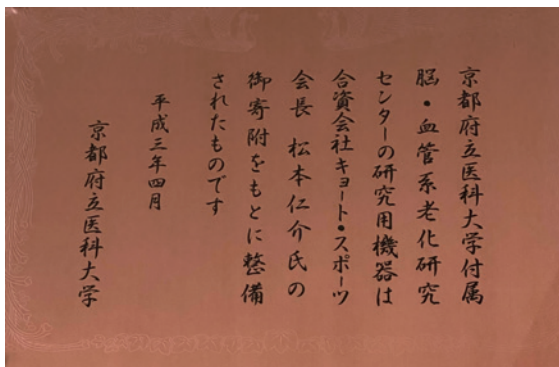 京都府立医科大学付属
脳・血管系老化研究
センターの研究用機器は
合資会社キョート・スポーツ
会長 松本仁介氏の
御寄附をもとに整備
されたものです
平成三年四月
京都府立医科大学